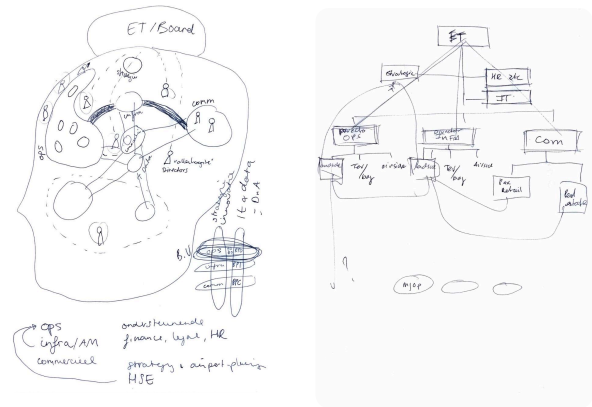 ET/Board
strategie
comm
infra
OPS
Directors
strategie
innovatie
IT & data
= DnA
B.V
ops
infra
comm
OPS
infra/AM
commercieel
ondersteunende
finance, legal, HR
strategy & airport planning
HSE
ET
strategie
HR etc
IT
Com
OPS
landside
Ter/
bag
airside
landside
Ter/
bag
Airside
Pax
Retail
mjop
?